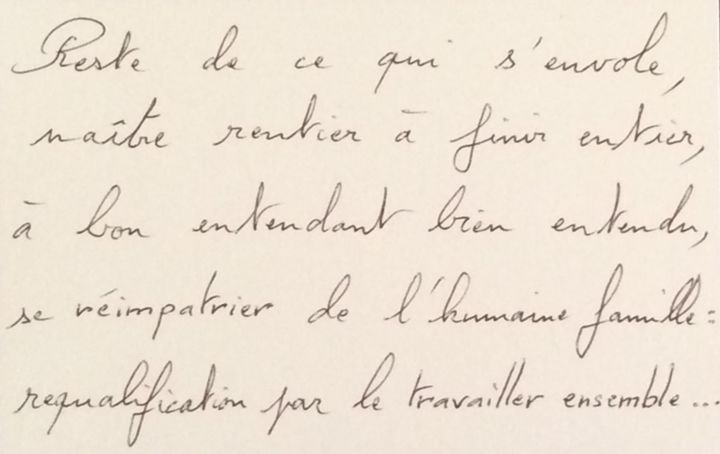 Reste de ce qui s'envole,
naître rentier à finir entier,
à bon entendant bien entendu,
se réimpatrier de l'humaine famille :
requalification par le travailler ensemble...